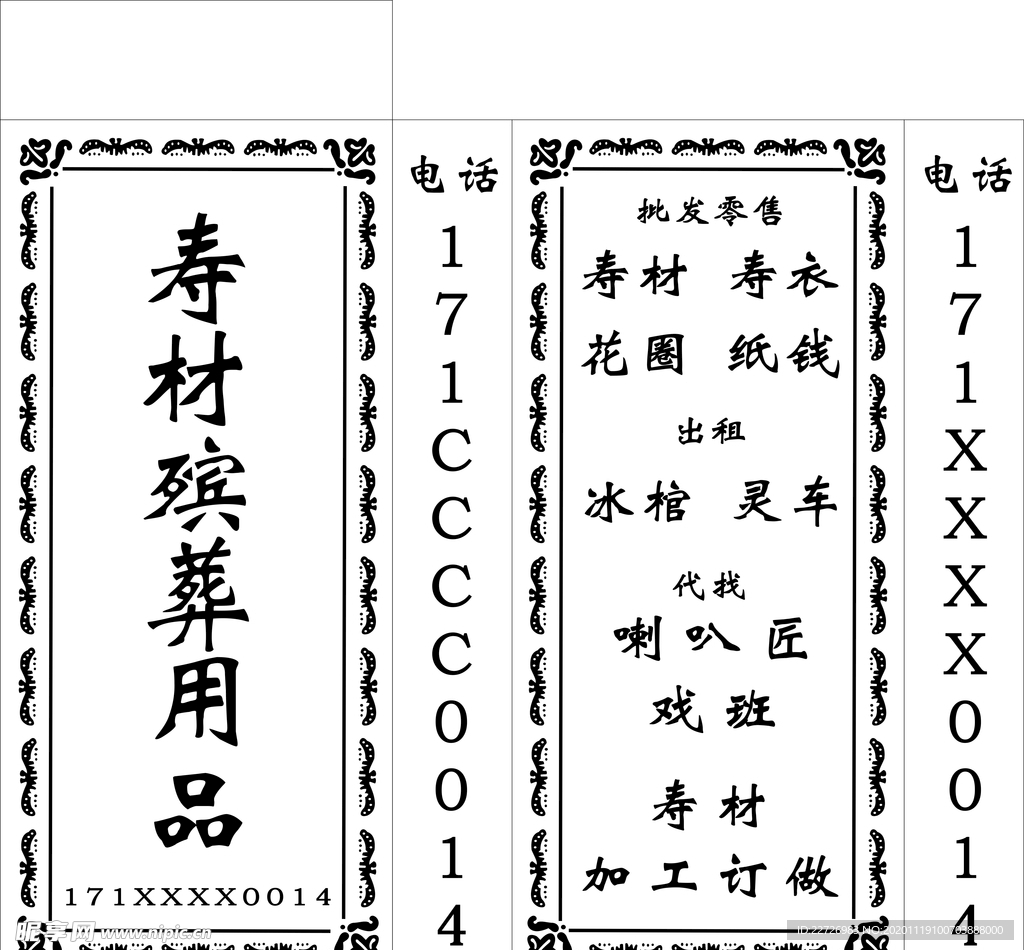 寿材殡葬用品
171XXXX0014
电话
171CCCC0014
批发零售
寿材 寿衣
花圈 纸钱
出租
冰棺 灵车
代找
喇叭匠
戏班
寿材
加工订做
电话
171XXXX0014
昵享网 www.nipic.cn